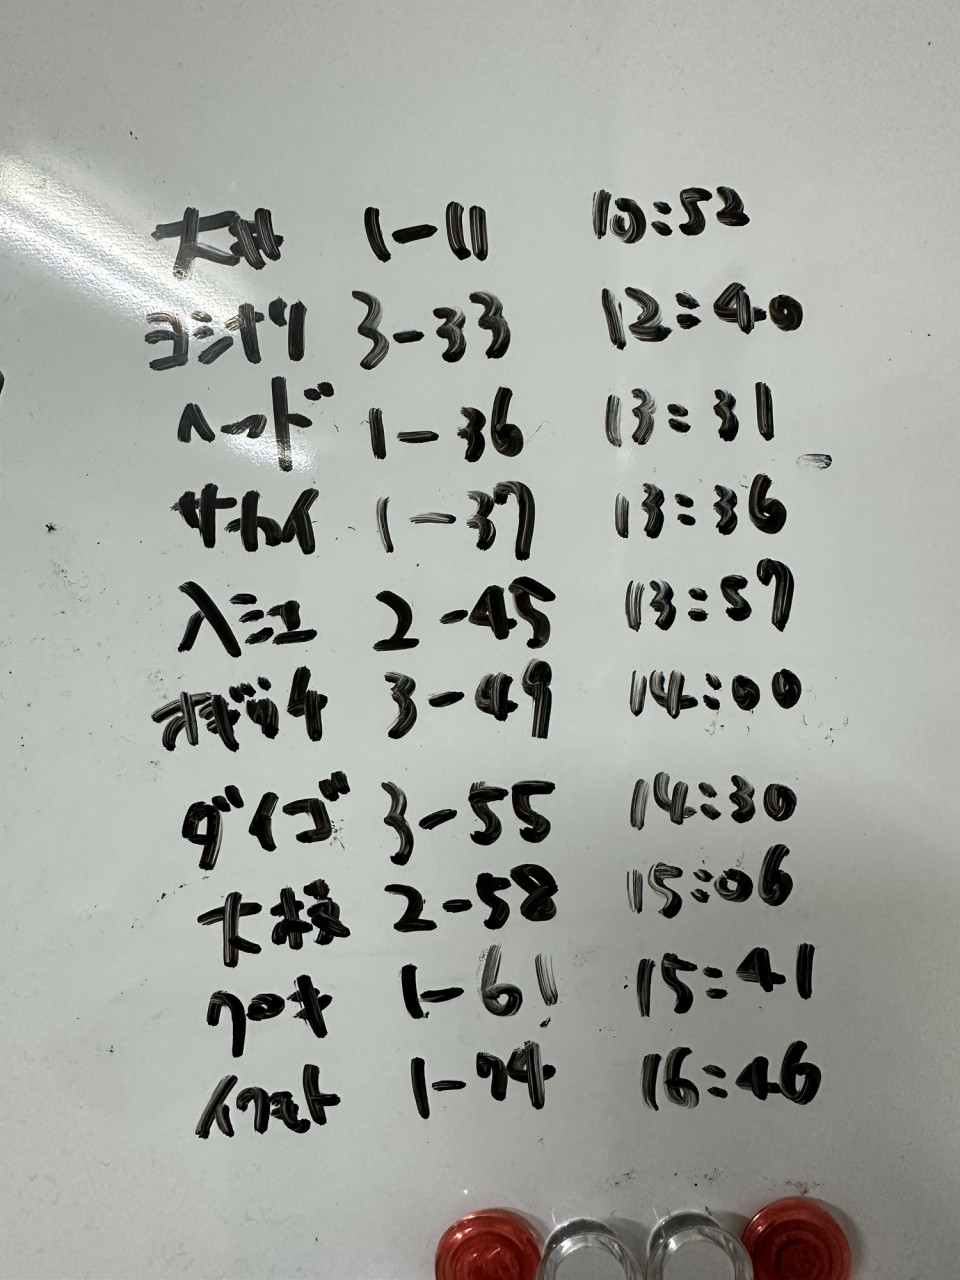 1-11 10:52
コンドウ 3-33 12:40
ヘッド 1-36 13:31
サカイ 1-37 13:36
入江 2-45 13:57
3-49 14:00
ダイゴ 3-55 14:30
大桜 2-58 15:06
1-61 15:41
イワモト 1-74 16:46